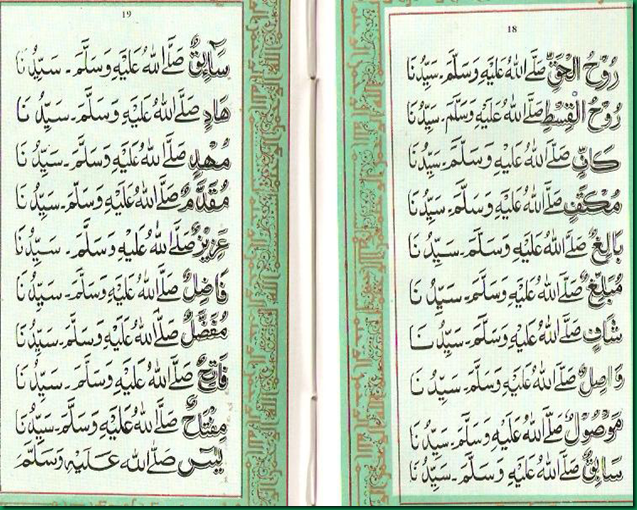 18
رُوْحُ الْحَقِّ صَلَّى اللهُ عَلَيْهِ وَسَلَّمَ۔ سَيِّدُنَا
رُوْحُ الْقِسْطِ صَلَّى اللهُ عَلَيْهِ وَسَلَّمَ۔ سَيِّدُنَا
كَافٍ صَلَّى اللهُ عَلَيْهِ وَسَلَّمَ۔ سَيِّدُنَا
مُكْتَفٍ صَلَّى اللهُ عَلَيْهِ وَسَلَّمَ۔ سَيِّدُنَا
بَالِغٌ صَلَّى اللهُ عَلَيْهِ وَسَلَّمَ۔ سَيِّدُنَا
مُبَلِّغٌ صَلَّى اللهُ عَلَيْهِ وَسَلَّمَ۔ سَيِّدُنَا
شَافٍ صَلَّى اللهُ عَلَيْهِ وَسَلَّمَ۔ سَيِّدُنَا
وَاصِلٌ صَلَّى اللهُ عَلَيْهِ وَسَلَّمَ۔ سَيِّدُنَا
مَوْصُوْلٌ صَلَّى اللهُ عَلَيْهِ وَسَلَّمَ۔ سَيِّدُنَا
سَابِقٌ صَلَّى اللهُ عَلَيْهِ وَسَلَّمَ۔ سَيِّدُنَا
19
سَآئِقٌ صَلَّى اللهُ عَلَيْهِ وَسَلَّمَ۔ سَيِّدُنَا
هَادٍ صَلَّى اللهُ عَلَيْهِ وَسَلَّمَ۔ سَيِّدُنَا
مُهْدٍ صَلَّى اللهُ عَلَيْهِ وَسَلَّمَ۔ سَيِّدُنَا
مُقَدَّمٌ صَلَّى اللهُ عَلَيْهِ وَسَلَّمَ۔ سَيِّدُنَا
عَزِيْزٌ صَلَّى اللهُ عَلَيْهِ وَسَلَّمَ۔ سَيِّدُنَا
فَاضِلٌ صَلَّى اللهُ عَلَيْهِ وَسَلَّمَ۔ سَيِّدُنَا
مُفَضَّلٌ صَلَّى اللهُ عَلَيْهِ وَسَلَّمَ۔ سَيِّدُنَا
فَاتِحٌ صَلَّى اللهُ عَلَيْهِ وَسَلَّمَ۔ سَيِّدُنَا
مِفْتَاحٌ صَلَّى اللهُ عَلَيْهِ وَسَلَّمَ۔ سَيِّدُنَا
صَلَّى الله عَلَيْهِ وَسَلَّمَ